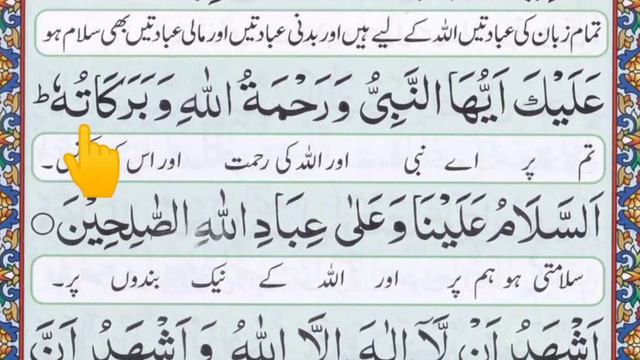 تمام زبان کی عبادتیں اللہ کے لیے ہیں اور بدنی عبادتیں اور مالی عبادتیں بھی سلام ہو
عَلَيْكَ اَيُّهَا النَّبِىُّ وَرَحْمَةُ اللهِ وَبَرَكَاتُهٗ ؕ
تم پر اے نبی اور اللہ کی رحمت اور اس
اَلسَّلَامُ عَلَيْنَا وَعَلٰى عِبَادِ اللهِ الصّٰلِحِيْنَ ○
سلامتی ہو ہم پر اور اللہ کے نیک بندوں پر۔
اَشْهَدُ اَنْ لَّآ اِلٰهَ اِلَّا اللهُ وَاَشْهَدُ اَنَّ